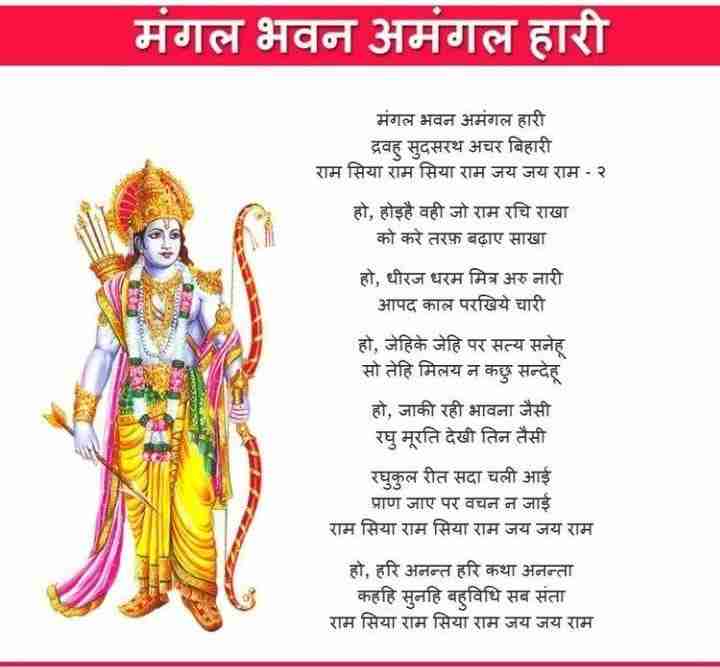 मंगल भवन अमंगल हारी
मंगल भवन अमंगल हारी
द्रवहु सुदसरथ अचर बिहारी
राम सिया राम सिया राम जय जय राम - २
हो, होइहै वही जो राम रचि राखा
को करे तरफ़ बढ़ाए साखा
हो, धीरज धरम मित्र अरु नारी
आपद काल परखिये चारी
हो, जेहिके जेहि पर सत्य सनेहू
सो तेहि मिलय न कछु सन्देहू
हो, जाकी रही भावना जैसी
रघु मूरति देखी तिन तैसी
रघुकुल रीत सदा चली आई
प्राण जाए पर वचन न जाई
राम सिया राम सिया राम जय जय राम
हो, हरि अनन्त हरि कथा अनन्ता
कहहि सुनहि बहुविधि सब संता
राम सिया राम सिया राम जय जय राम